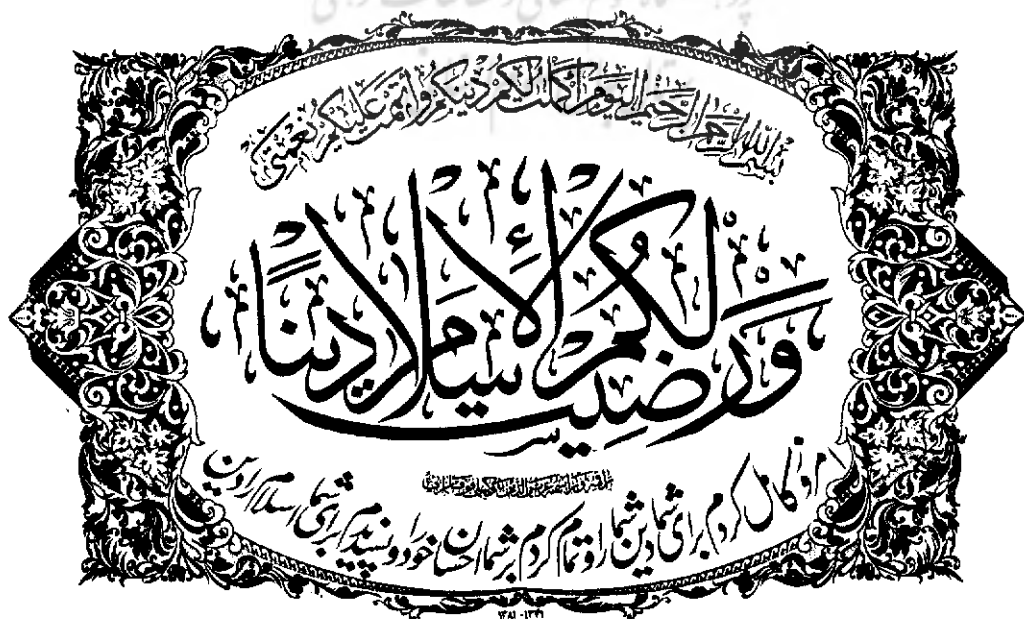 بسم الله الرحمن الرحیم الیوم أکملت لکم دینکم وأتممت علیکم نعمتی
ورضیت لکم الإسلام دینا
امروز کامل کردم برای شما دین شما را و تمام کردم بر شما احسان خود را و پسندیدم برای شما اسلام را دین
۱۳۸۱ - ۱۳۴۱